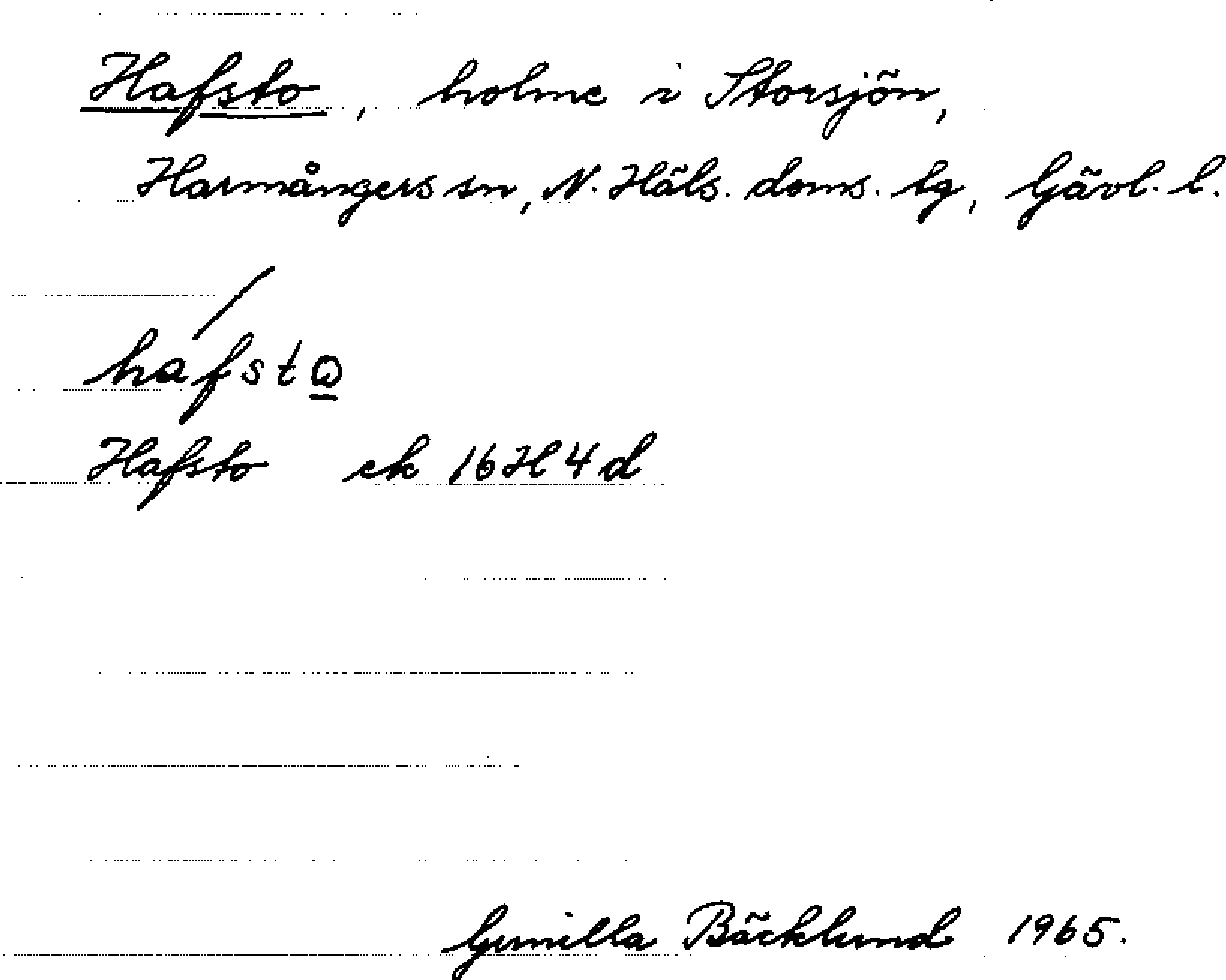 Hafsto, holme i Storsjön,
Harmångers sn, N. Häls. doms. lg, Gävl. l.
hafsto
Hafsto ek 16H4d
Gunilla Bäcklund 1965.